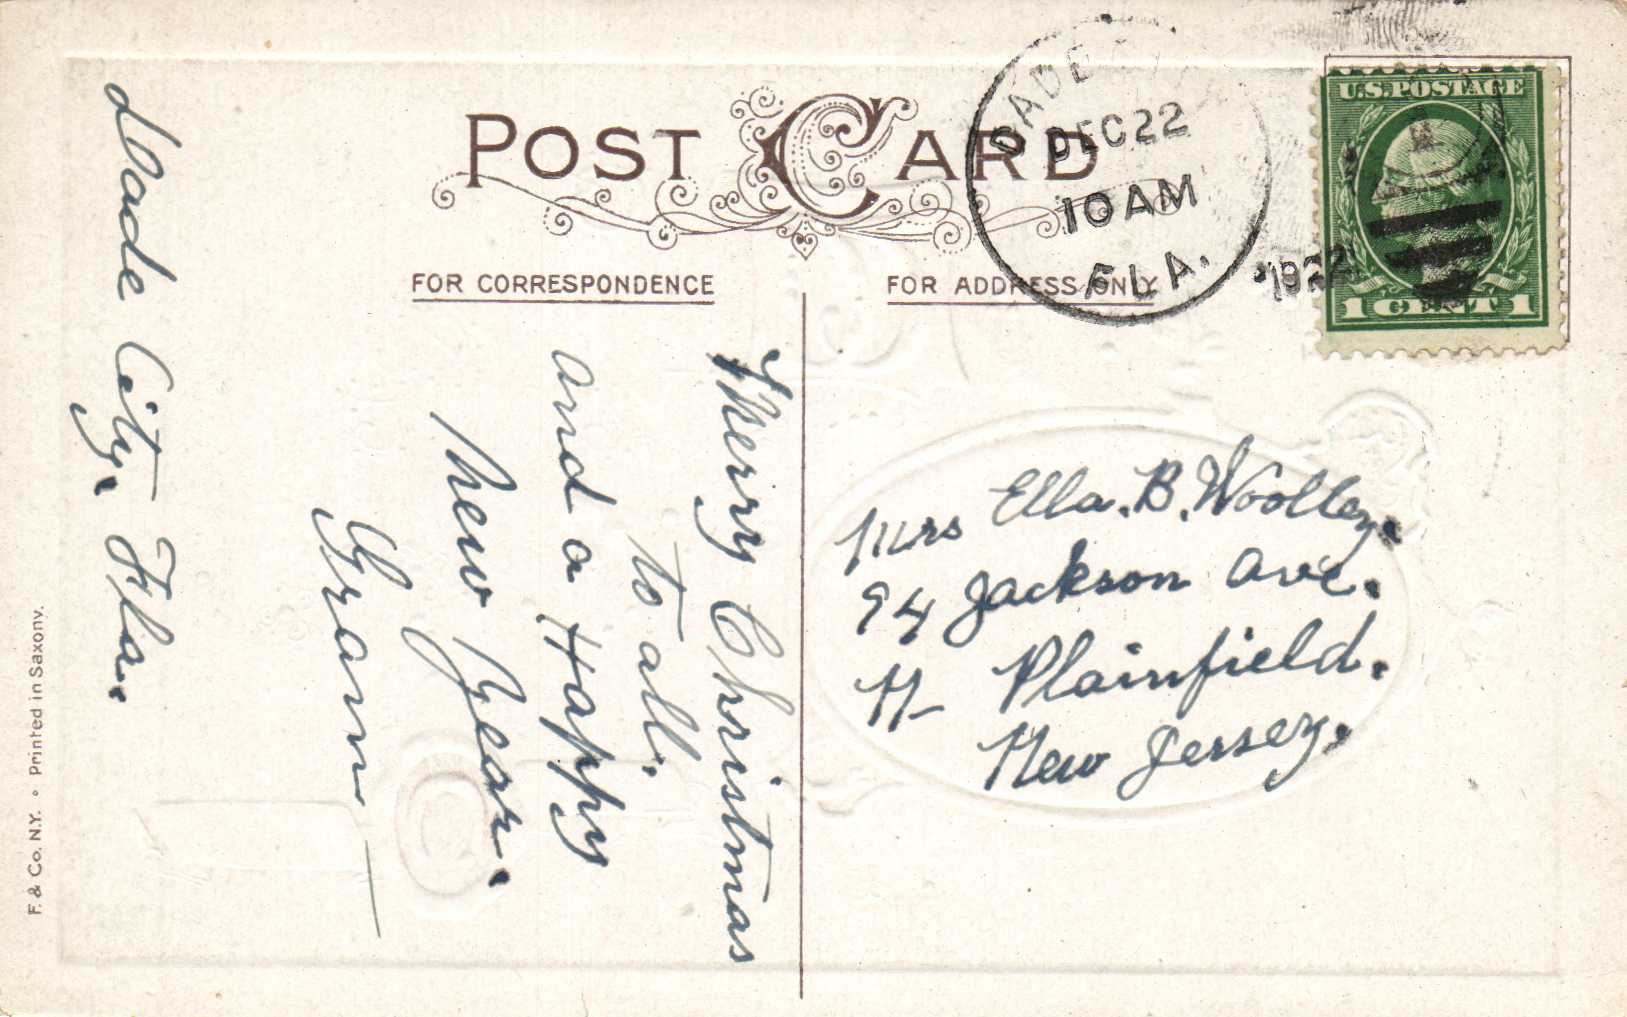 POST CARD
FOR CORRESPONDENCE
FOR ADDRESS ONLY
DADE
DEC 22
10 AM
FLA.
1922
U.S. POSTAGE
1 CENT 1
Merry Christmas
to all.
and a Happy
New Year.
Gram
Dade City. Fla.
Mrs Ella. B. Woolley.
94 Jackson Ave.
N- Plainfield.
New Jersey.
F. & Co. N.Y. • Printed in Saxony.